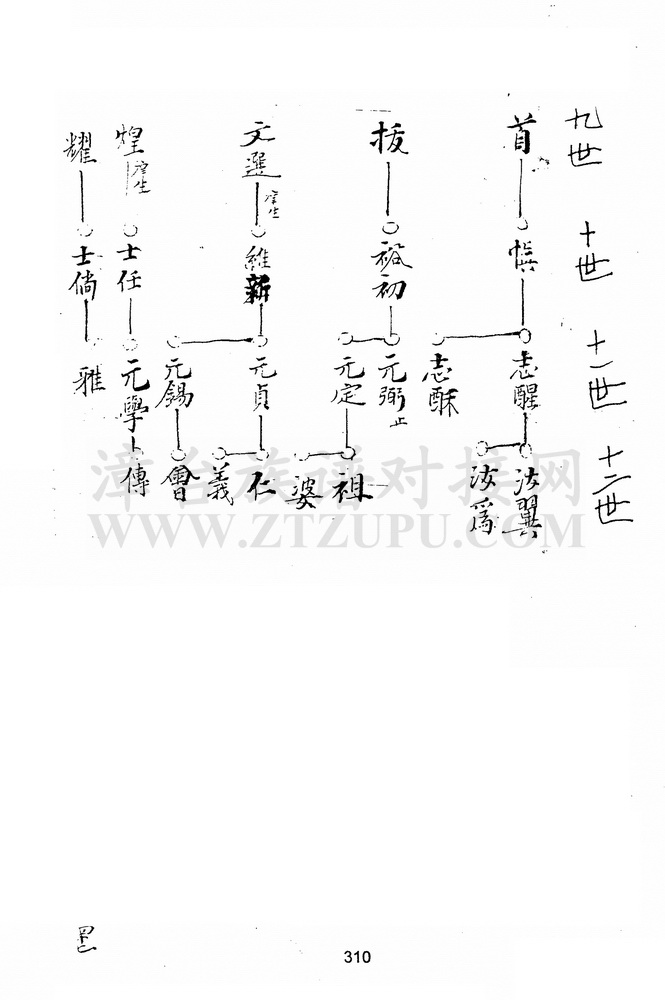 九世
十世
十一世
十二世
首
慎
志醒
志酥
法翼
汝為
拔
裕初
元弼止
元定
祖
婆
文選庠生
維新
元貞
元錫
仁
義
會
煌庠生
士任
元學
傳
耀
士倘
雅
漳台族谱对接网
WWW.ZTZUPU.COM
310